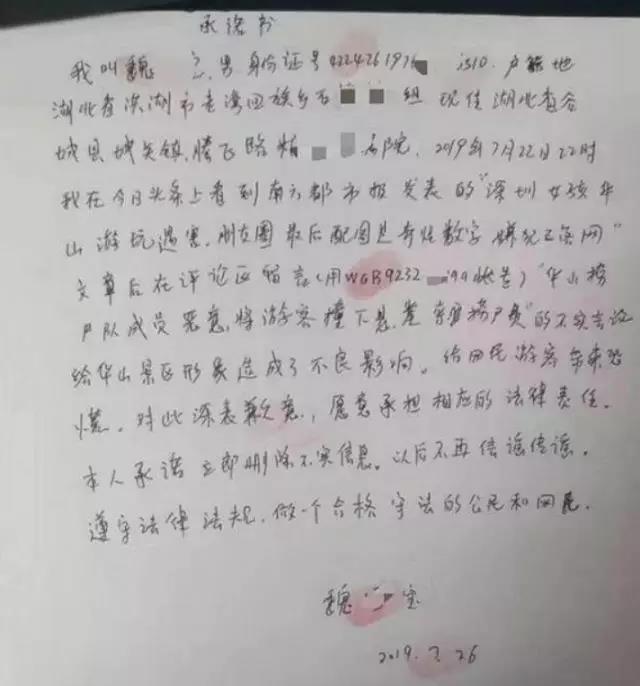 承诺书
我叫魏 男 身份证号422426197 1510. 户籍地
湖北省洪湖市老湾回族乡 组 现住湖北省谷
城县城关镇腾飞路 2019年7月22日22时
我在今日头条上看到南方都市报发表的"深圳女孩华
山游玩遇害,朋友圈最后配图是奇怪数字 嫌犯已落网"
文章后在评论区留言(用WGB9232 账号)"华山
队成员恶意将游客撞下悬崖 "的不实言论
给华山景区形象造成了不良影响。给网民游客带来恐
慌。对此深表歉意,愿意承担相应的法律责任。
本人承诺立即删除不实信息。以后不再信谣传谣。
遵守法律法规.做一个合格守法的公民和网民.
魏 宝
2019.7.26